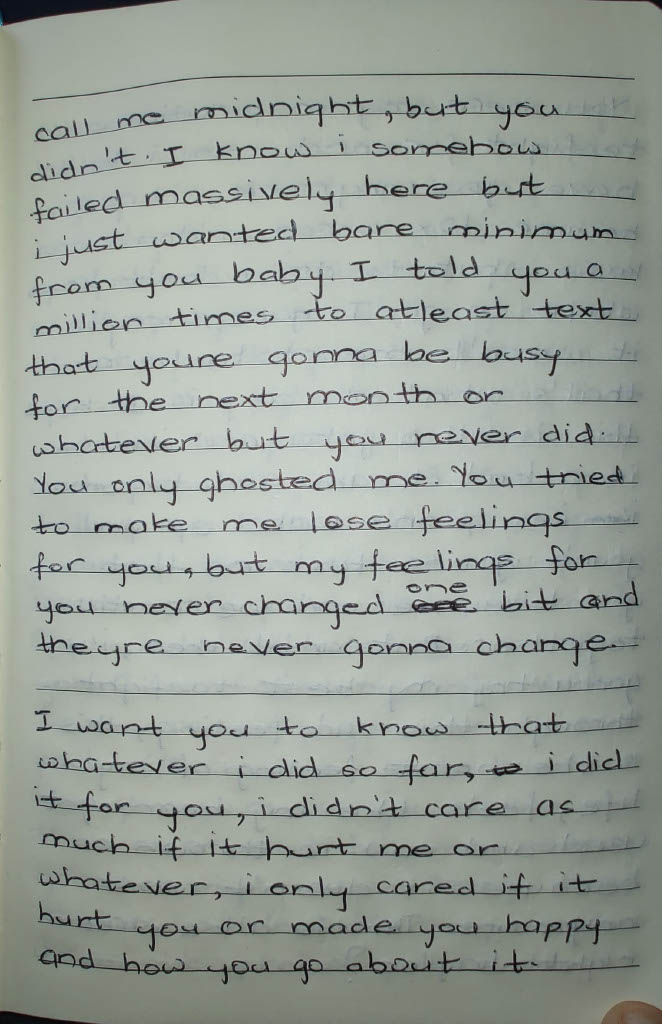 call me midnight, but you
didn't. I know i somehow
failed massively here but
i just wanted bare minimum
from you baby. I told you a
million times to atleast text
that youre gonna be busy
for the next month or
whatever but you never did.
You only ghosted me. You tried
to make me lose feelings
for you, but my feelings for
you never changed one bit and
theyre never gonna change.
I want you to know that
whatever i did so far, i did
it for you, i didn't care as
much if it hurt me or
whatever, i only cared if it
hurt you or made you happy
and how you go about it.